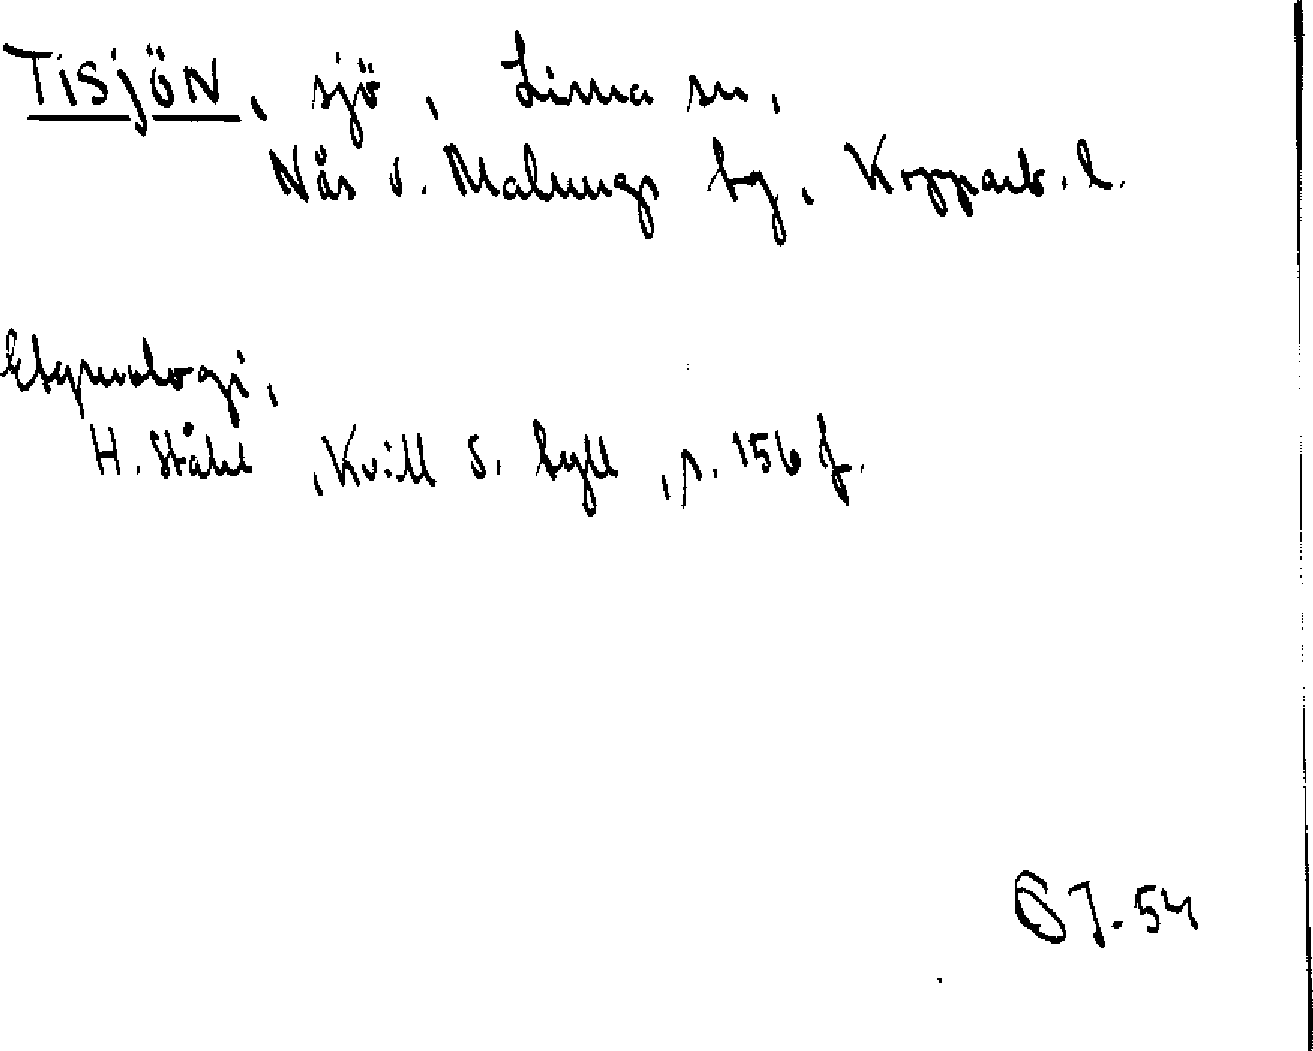 TiSjöN, sjö, Lima sn,
Nås o. Malungs tg, Kopparb. l.
Etymologi,
H. Ståhl, Kvill o. tyll, s. 156 f.
57.54